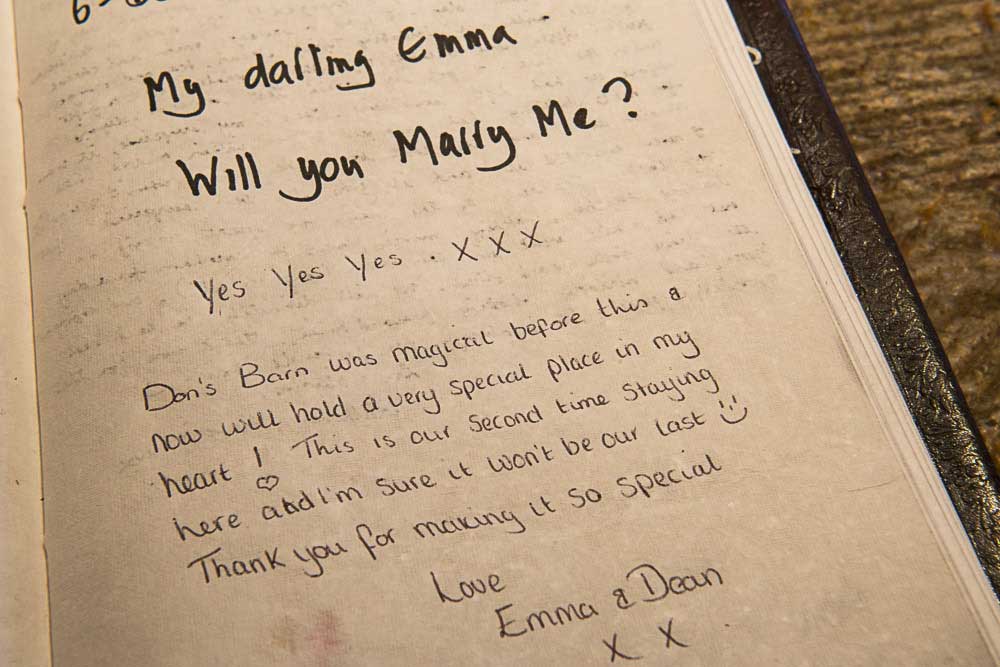 My darling Emma
Will you Marry Me?
Yes Yes Yes . X X X
Don's Barn was magical before this &
now will hold a very special place in my
heart ! This is our Second time Staying
here and I'm sure it won't be our last :)
Thank you for making it so special
Love
Emma & Dean
X X